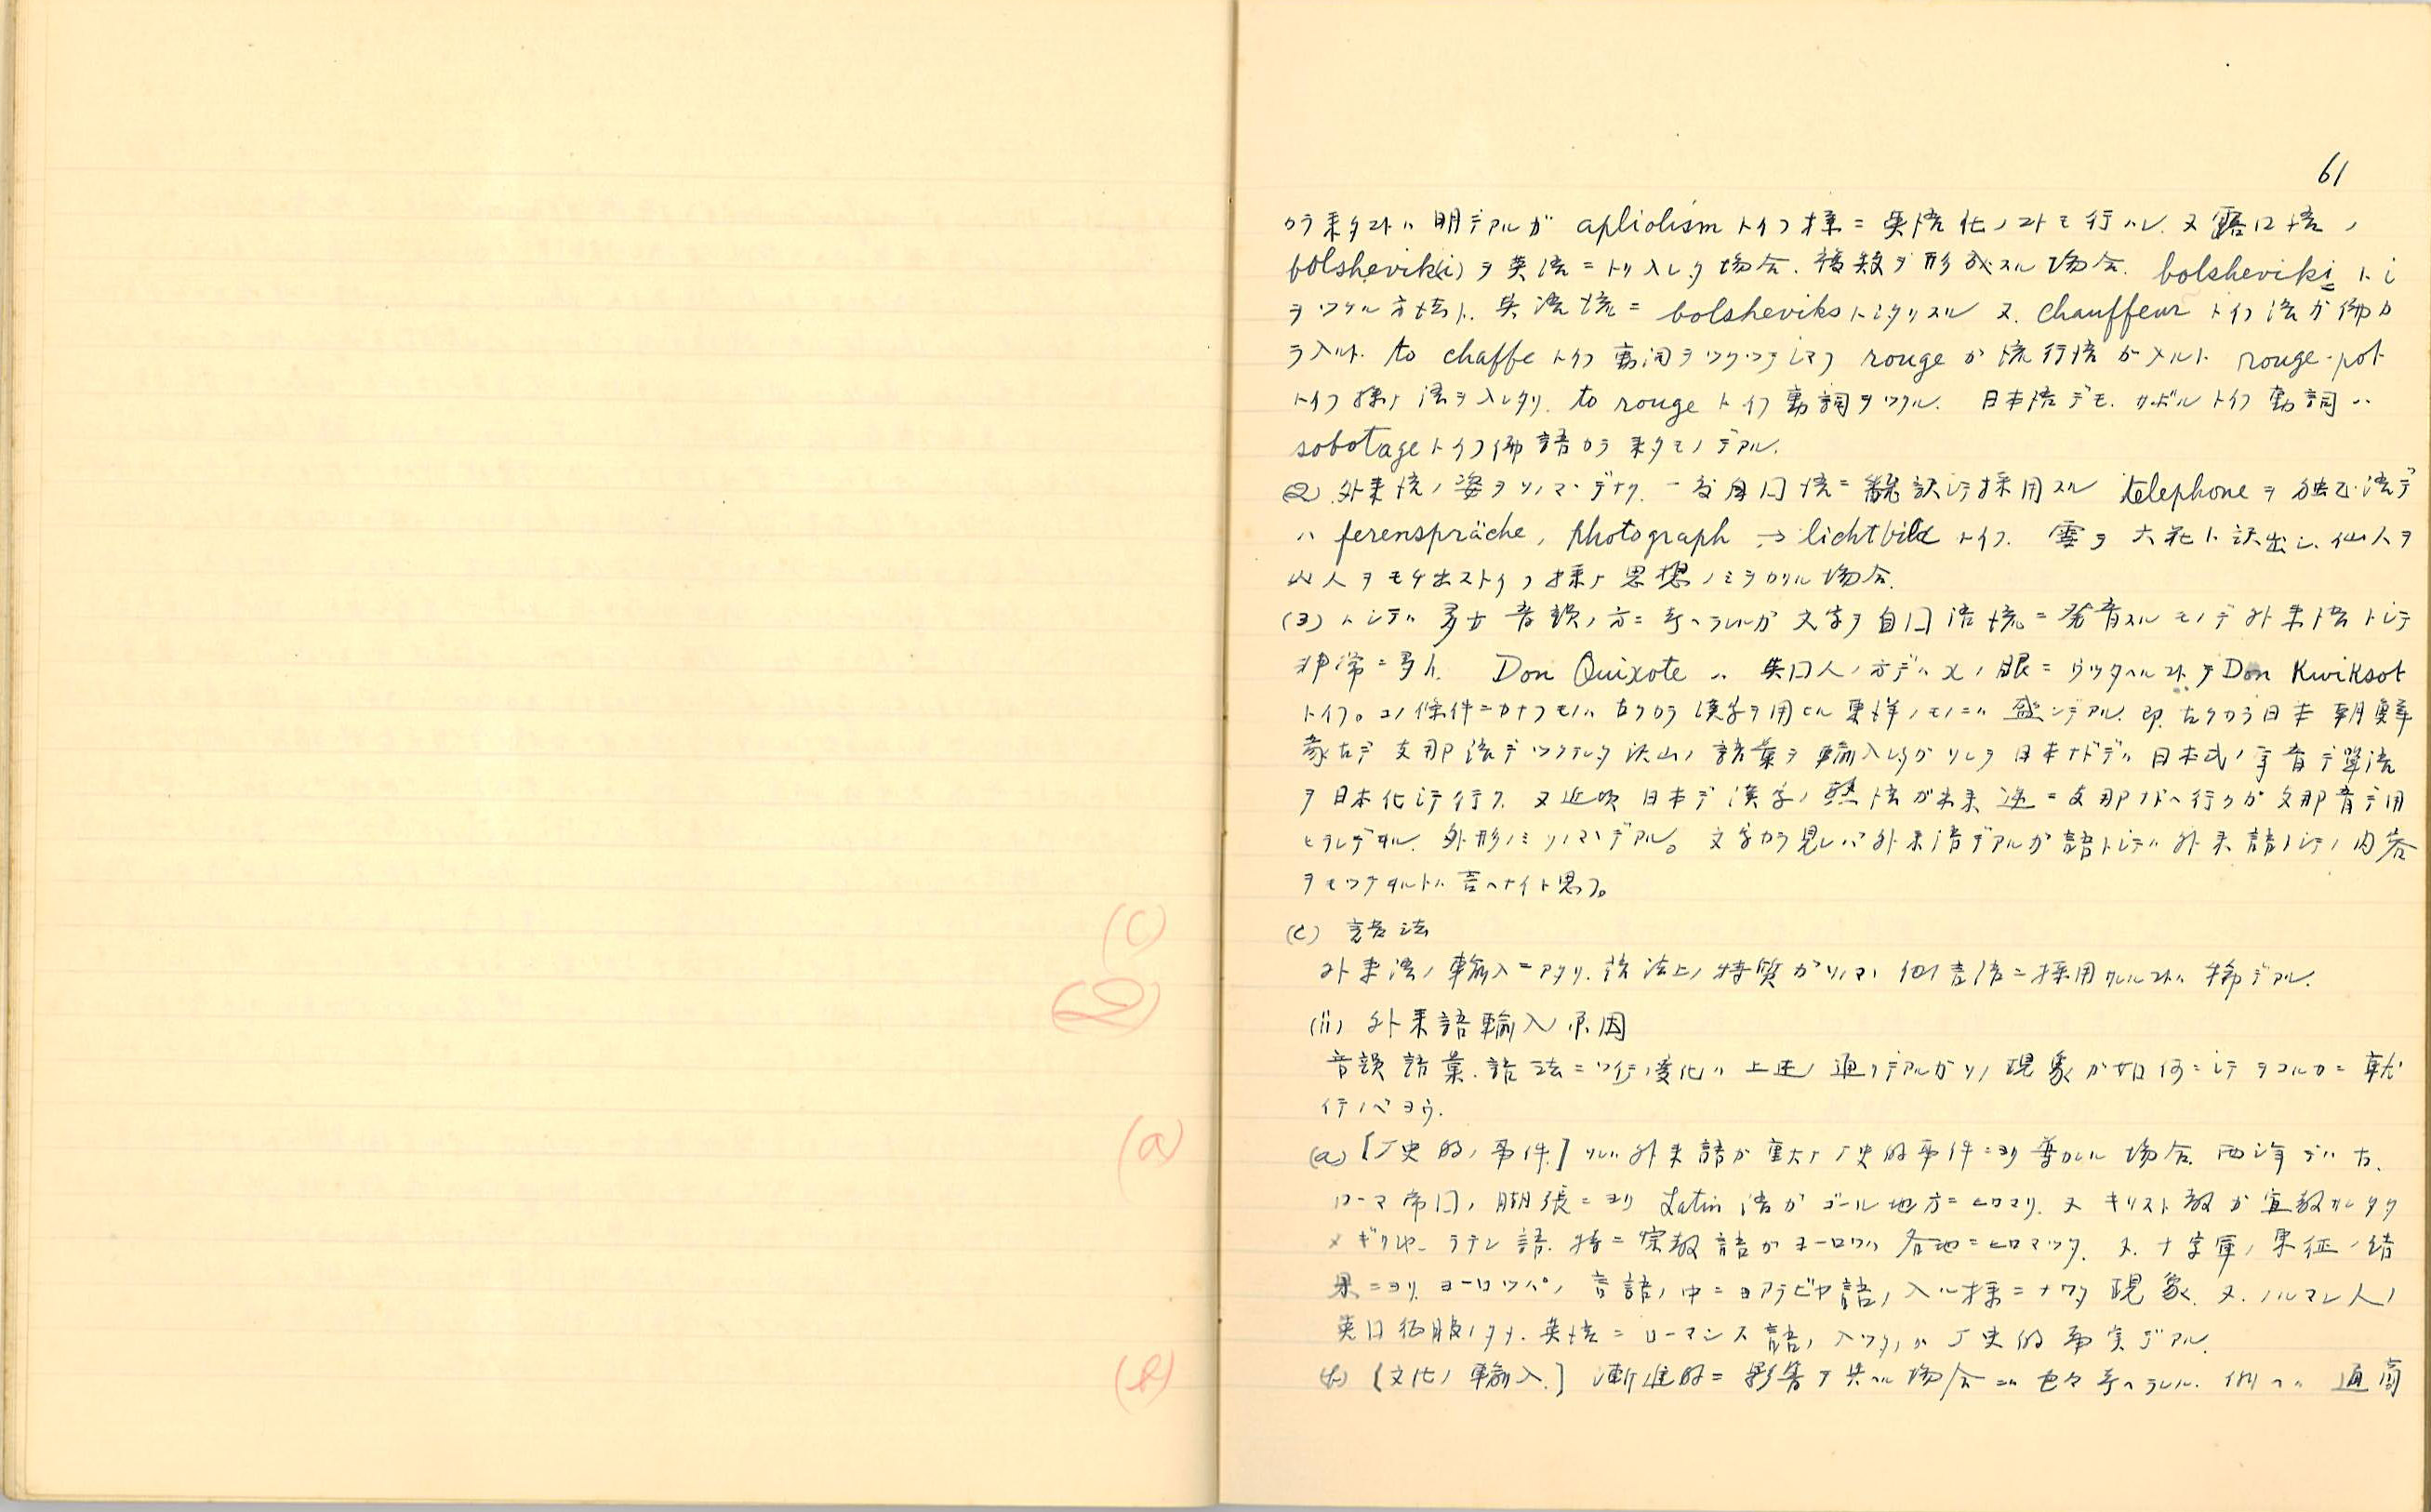 (c)
(2)
(a)
(b)
61
カラ来タコトハ明デアルガ apliolism トイフ様ニ英語化ノコトモ行ハレ.又露口語ノ
bolshevik(i) ヲ英語ニトリ入レタ場合.複数ヲ形成スル場合. bolsheviki トi
ヲツケル方法ト.英語流ニ bolsheviks トシタリスル 又. chauffeur トイフ語ガ佛カ
ラ入ルト. to chaffe トイフ動詞ヲツクツテシマフ rouge ガ流行語ガ入ルト rouge-pot
トイフ様ナ語ヲ入レタリ. to rouge トイフ動詞ヲツクル. 日本語デモ.サボルトイフ動詞ハ
sobotage トイフ佛語カラ来タモノデアル.
(2) 外来語ノ姿ヲソノマヽデナク.一度自口語ニ飜訳シテ採用スル telephone ヲ独乙語デ
ハ ferenspräche, photograph → lichtbild トイフ. 雪ヲ六花ト訳出シ.仙人ヲ
山人ヲモチ出ストイフ様ナ思想ノミヲカリル場合.
(3) トシテハ多少音韻ノ方ニ考ヘラレルガ文字ヲ自口語流ニ発音スルモノデ外来語トシテ
非常ニ多イ. Don Quixote ハ 英口人ノ方デハxノ眼ニウツタヘルコトヲ Don Kwiksot
トイフ。コノ條件ニカナフモノハ古クカラ漢字ヲ用ヒル東洋ノモノニハ盛ンデアル.即.古クカラ日本朝鮮
蒙古デ支那語デツクラレタ沢山ノ語彙ヲ輸入シタガソレヲ日本ナドデハ日本式ノ字音デ単語
ヲ日本化シテ行ク.又近頃日本デ漢字ノ熟語ガ出来逆ニ支那ナドヘ行クガ支那音デ用
ヒラレテヰル.外形ノミソノマヽデアル。文字カラ見レバ外来語デアルガ語トシテハ外来語トシテノ内容
ヲモツテヰルトハ言ヘナイト思フ。
(c) 語法
外来語ノ輸入ニアタリ.語法上ノ特質ガソノマヽ他言語ニ採用サレルコトハ稀デアル.
(ii) 外来語輸入ノ原因
音韻語彙.語法ニツイテノ変化ハ上述ノ通リデアルガソノ現象ガ如何ニシテヲコルカニ就
イテノベヨウ.
(a) [厂史的ノ事件] ソレハ外来語ガ重大ナ厂史的事件ニヨリ導カレル場合.西洋デハ古.
ローマ帝口ノ膨張ニヨリ Latin 語ガゴール地方ニヒロマリ.又キリスト教ガ宣教サレタタ
メギリシヤ.ラテン語.特ニ宗教語ガヨーロツパ各地ニヒロマツタ.又.十字軍ノ東征ノ結
果ニヨリ.ヨーロツパノ言語ノ中ニアラビヤ語ノ入ル様ニナツタ現象.又.ノルマン人ノ
英口征服ノタメ.英語ニローマンス語ノ入ツタノガ厂史的事実デアル.
(b) [文化ノ輸入] 漸進的ニ影響ヲ共ヘル場合ニハ色々考ヘラレル.例ヘバ通商